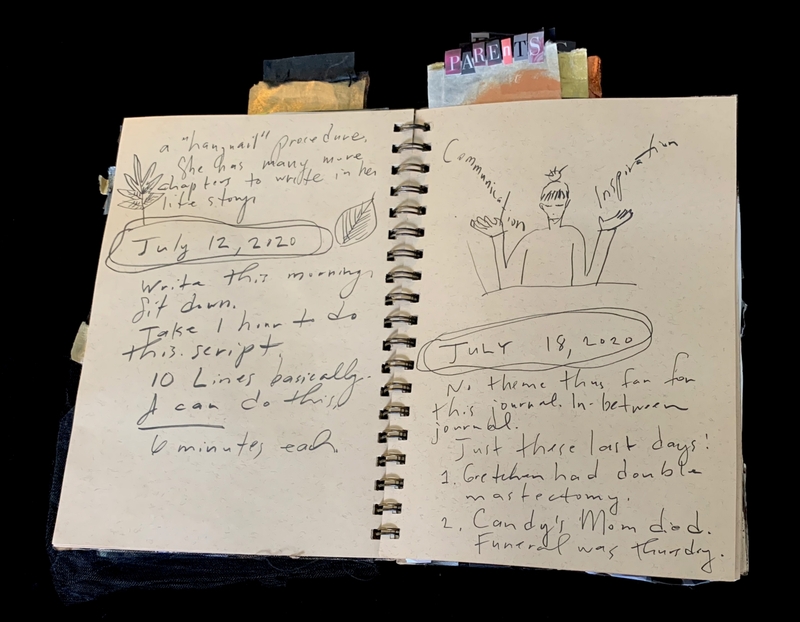 PAREnTS
a "hangnail" procedure.
She has many more
chapters to write in her
life story
July 12, 2020
Write this morning
Sit down.
Take 1 hour to do
this script.
10 Lines basically.
I can do this,
6 minutes each.
Communication
Inspiration
JULY 18, 2020
No theme thus far for
this journal. In-between
journal.
Just these last days!
1. Gretchen had double
mastectomy.
2. Candy's Mom died.
Funeral was thursday.